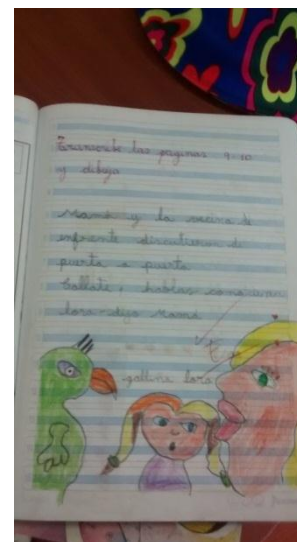 Transcribe las páginas 9-10
y dibujo
Mamá y la vecina de
enfrente discutieron de
puerta a puerta
Callate, hablas como una
lora - dijo Mamá
gallina lora